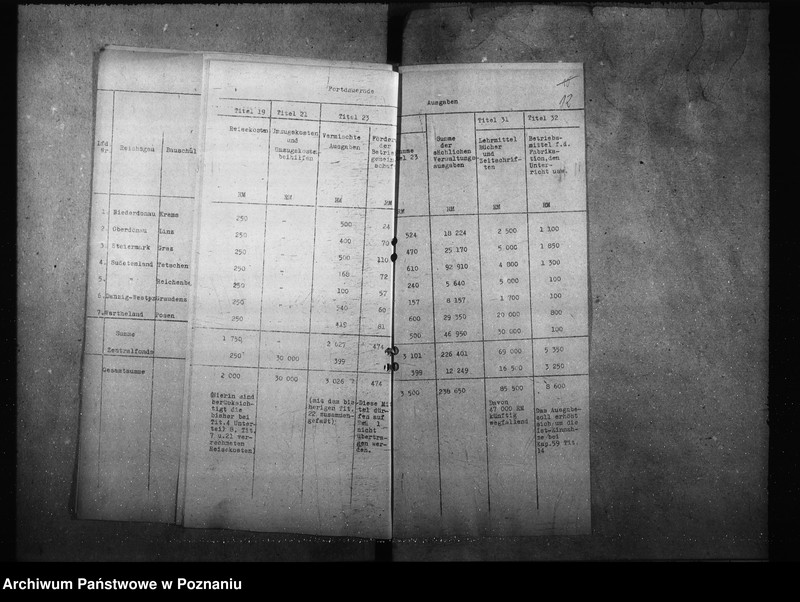 Fortdauernde
Ausgaben
12
Titel 19 Titel 21 Titel 23 Titel 31 Titel 32
Lfd. Nr. Reichsgau Bauschul
Reisekosten
Umzugskosten und Umzugskostenbeihilfen
Vermischte Ausgaben
Förder der Betrie gemein schaf
Summe Titel 23
Summe der sächlichen Verwaltungsausgaben
Lehrmittel Bücher und Zeitschriften
Betriebsmittel f.d. Fabrikation, den Unterricht usw.
RM RM RM RM RM RM RM RM
1. Niederdonau Krems 250 - 500 24 524 18 224 2 500 1 100
2. Oberdonau Linz 250 - 400 70 470 25 170 5 000 1 850
3. Steiermark Graz 250 - 500 110 610 92 910 4 800 1 300
4. Sudetenland Tetschen 250 - 168 72 240 5 640 5 000 100
5. " Reichenbe 250 - 100 57 157 8 157 1 700 100
6. Danzig-Westpr Graudenz 250 - 540 60 600 29 350 20 000 800
7. Wartheland Posen 250 - 419 81 500 46 950 30 000 100
Summe 1 750 2 627 474 3 101 226 401 69 000 5 350
Zentralfonds 250 30 000 399 399 12 249 16 500 3 250
Gesamtsumme 2 000 30 000 3 026 474 3 500 238 650 85 500 8 600
(Hierin sind
berücksich-
tigt die
bisher bei
Tit.4 Unter-
teil 8, Tit.
7 u.21 ver-
rechneten
Reisekosten)
(mit dem bis-
herigen Tit.
22 zusammen-
gefaßt)
Diese Mi
tel dür-
fen auf
nicht
übertra-
gen wer-
den.
Davon
47 000 RM
künftig
wegfallend
Das Ausgabe-
soll erhöht
sich um die
Ist-Einnah-
me bei
Kap.59 Tit.
14
Archiwum Państwowe w Poznaniu